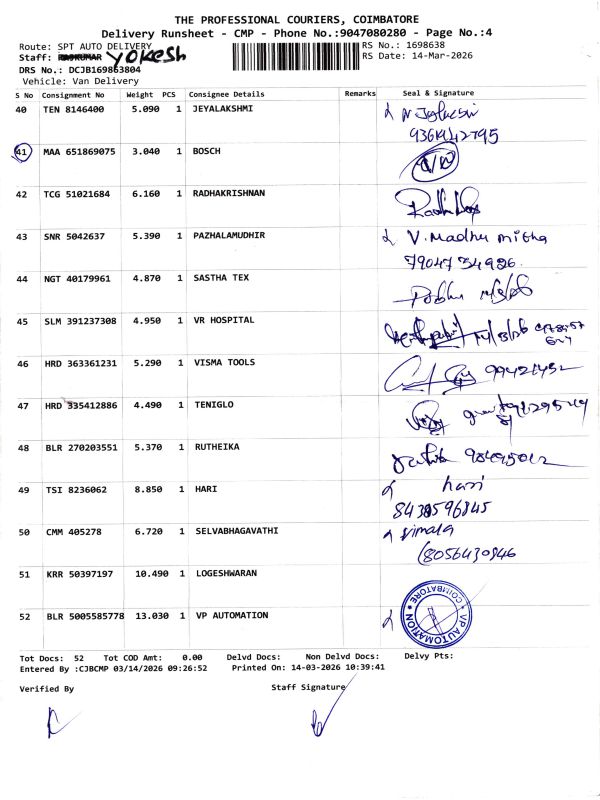 THE PROFESSIONAL COURIERS, COIMBATORE
Delivery Runsheet - CMP - Phone No.:9047080280 - Page No.:4
Route: SPT AUTO DELIVERY
RS No.: 1698638
Staff: YOKESH
RS Date: 14-Mar-2026
DRS No.: DCJB169863804
Vehicle: Van Delivery
S No Consignment No Weight PCS Consignee Details Remarks Seal & Signature
40 TEN 8146400 5.090 1 JEYALAKSHMI
41 MAA 651869075 3.040 1 BOSCH
42 TCG 51021684 6.160 1 RADHAKRISHNAN
43 SNR 5042637 5.390 1 PAZHALAMUDHIR V. Madhu mitha
79047 34986
44 NGT 40179961 4.870 1 SASTHA TEX
45 SLM 391237308 4.950 1 VR HOSPITAL
46 HRD 363361231 5.290 1 VISMA TOOLS
47 HRD 335412886 4.490 1 TENIGLO
48 BLR 270203551 5.370 1 RUTHEIKA
49 TSI 8236062 8.850 1 HARI hari
50 CMM 405278 6.720 1 SELVABHAGAVATHI Vimala
8056430846
51 KRR 50397197 10.490 1 LOGESHWARAN
52 BLR 5005585778 13.030 1 VP AUTOMATION VP AUTOMATION COIMBATORE
Tot Docs: 52 Tot COD Amt: 0.00 Delvd Docs: Non Delvd Docs: Delvy Pts:
Entered By :CJBCMP 03/14/2026 09:26:52 Printed On: 14-03-2026 10:39:41
Verified By Staff Signature